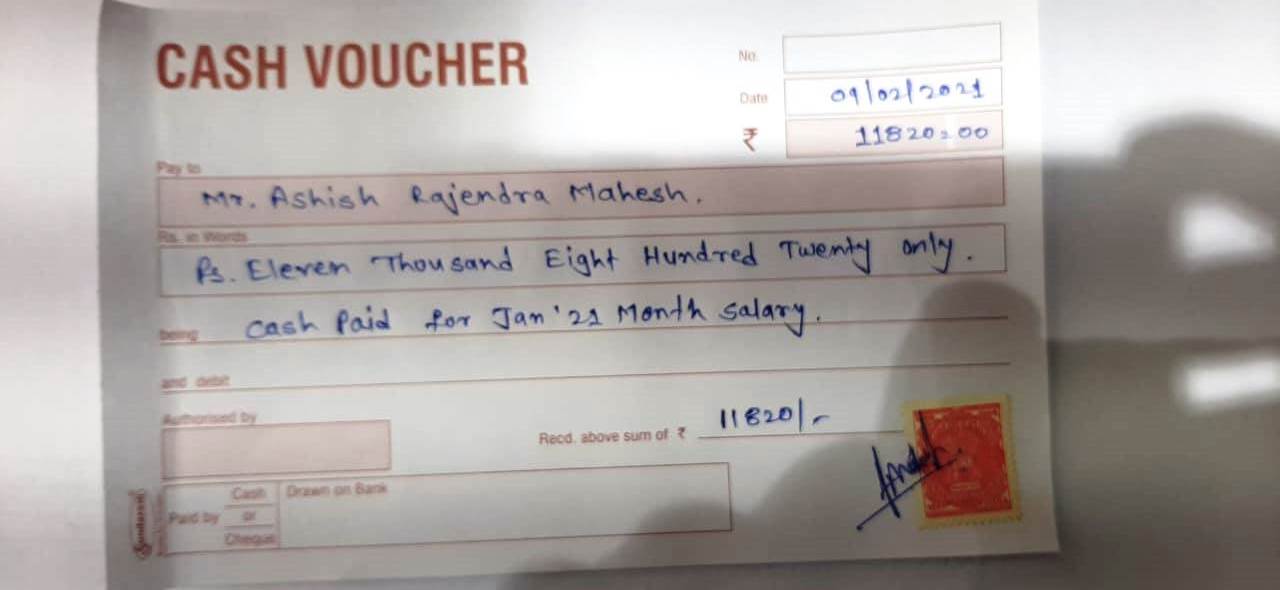 CASH VOUCHER
No.
Date 09/02/2021
₹ 11820=00
Pay to
Mr. Ashish Rajendra Mahesh.
Rs. in Words
Rs. Eleven Thousand Eight Hundred Twenty only.
being Cash Paid for Jan '21 Month Salary.
and debit
Authorised by
Recd. above sum of ₹ 11820/-
Paid by Cash or Cheque
Drawn on Bank
Sundaram